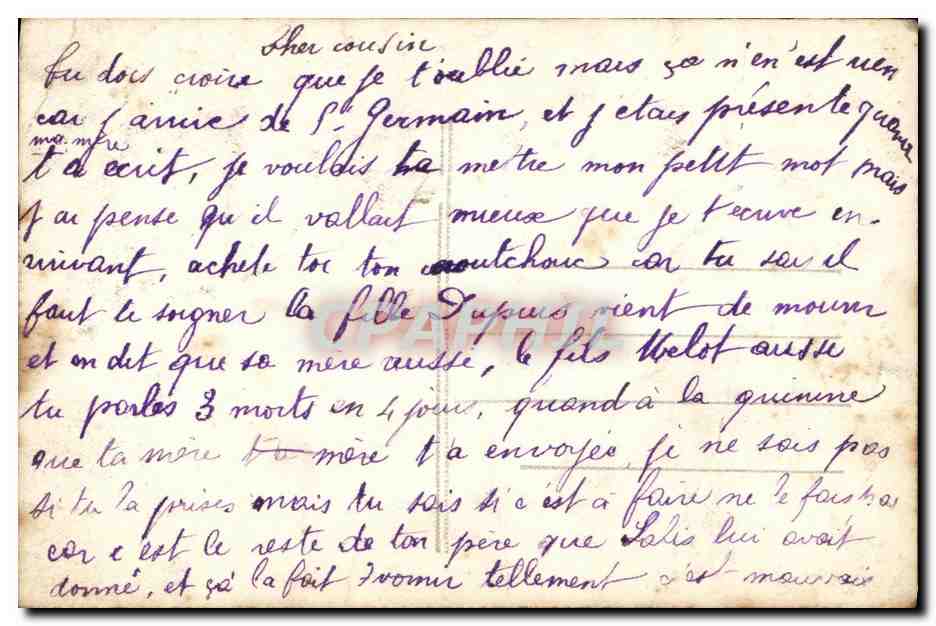 Cher cousin
tu dois croire que je t'oublie mais ça n'en est rien
car j'arrive de St Germain, et j'etais présente quand
ma mère
t'a ecrit, je voulais ta metre mon petit mot mais
j'ai pense qu'il vallait mieux que je t'ecrive en
arrivant, achete toi ton caoutchouc car tu sais il
faut te soigner la fille Dupuis vient de mourir
et on dit que sa mère aussi, le fils Melot aussi
tu parles 3 morts en 4 jours, quand à la quinine
que ta mère mère t'a envoyée, je ne sais pas
si tu la prises mais tu sais si c'est à faire ne le fais pas
car c'est le reste de ton père que Salis lui avait
donné, et ça la fait vomir tellement c'est mauvais
CPAPHIL